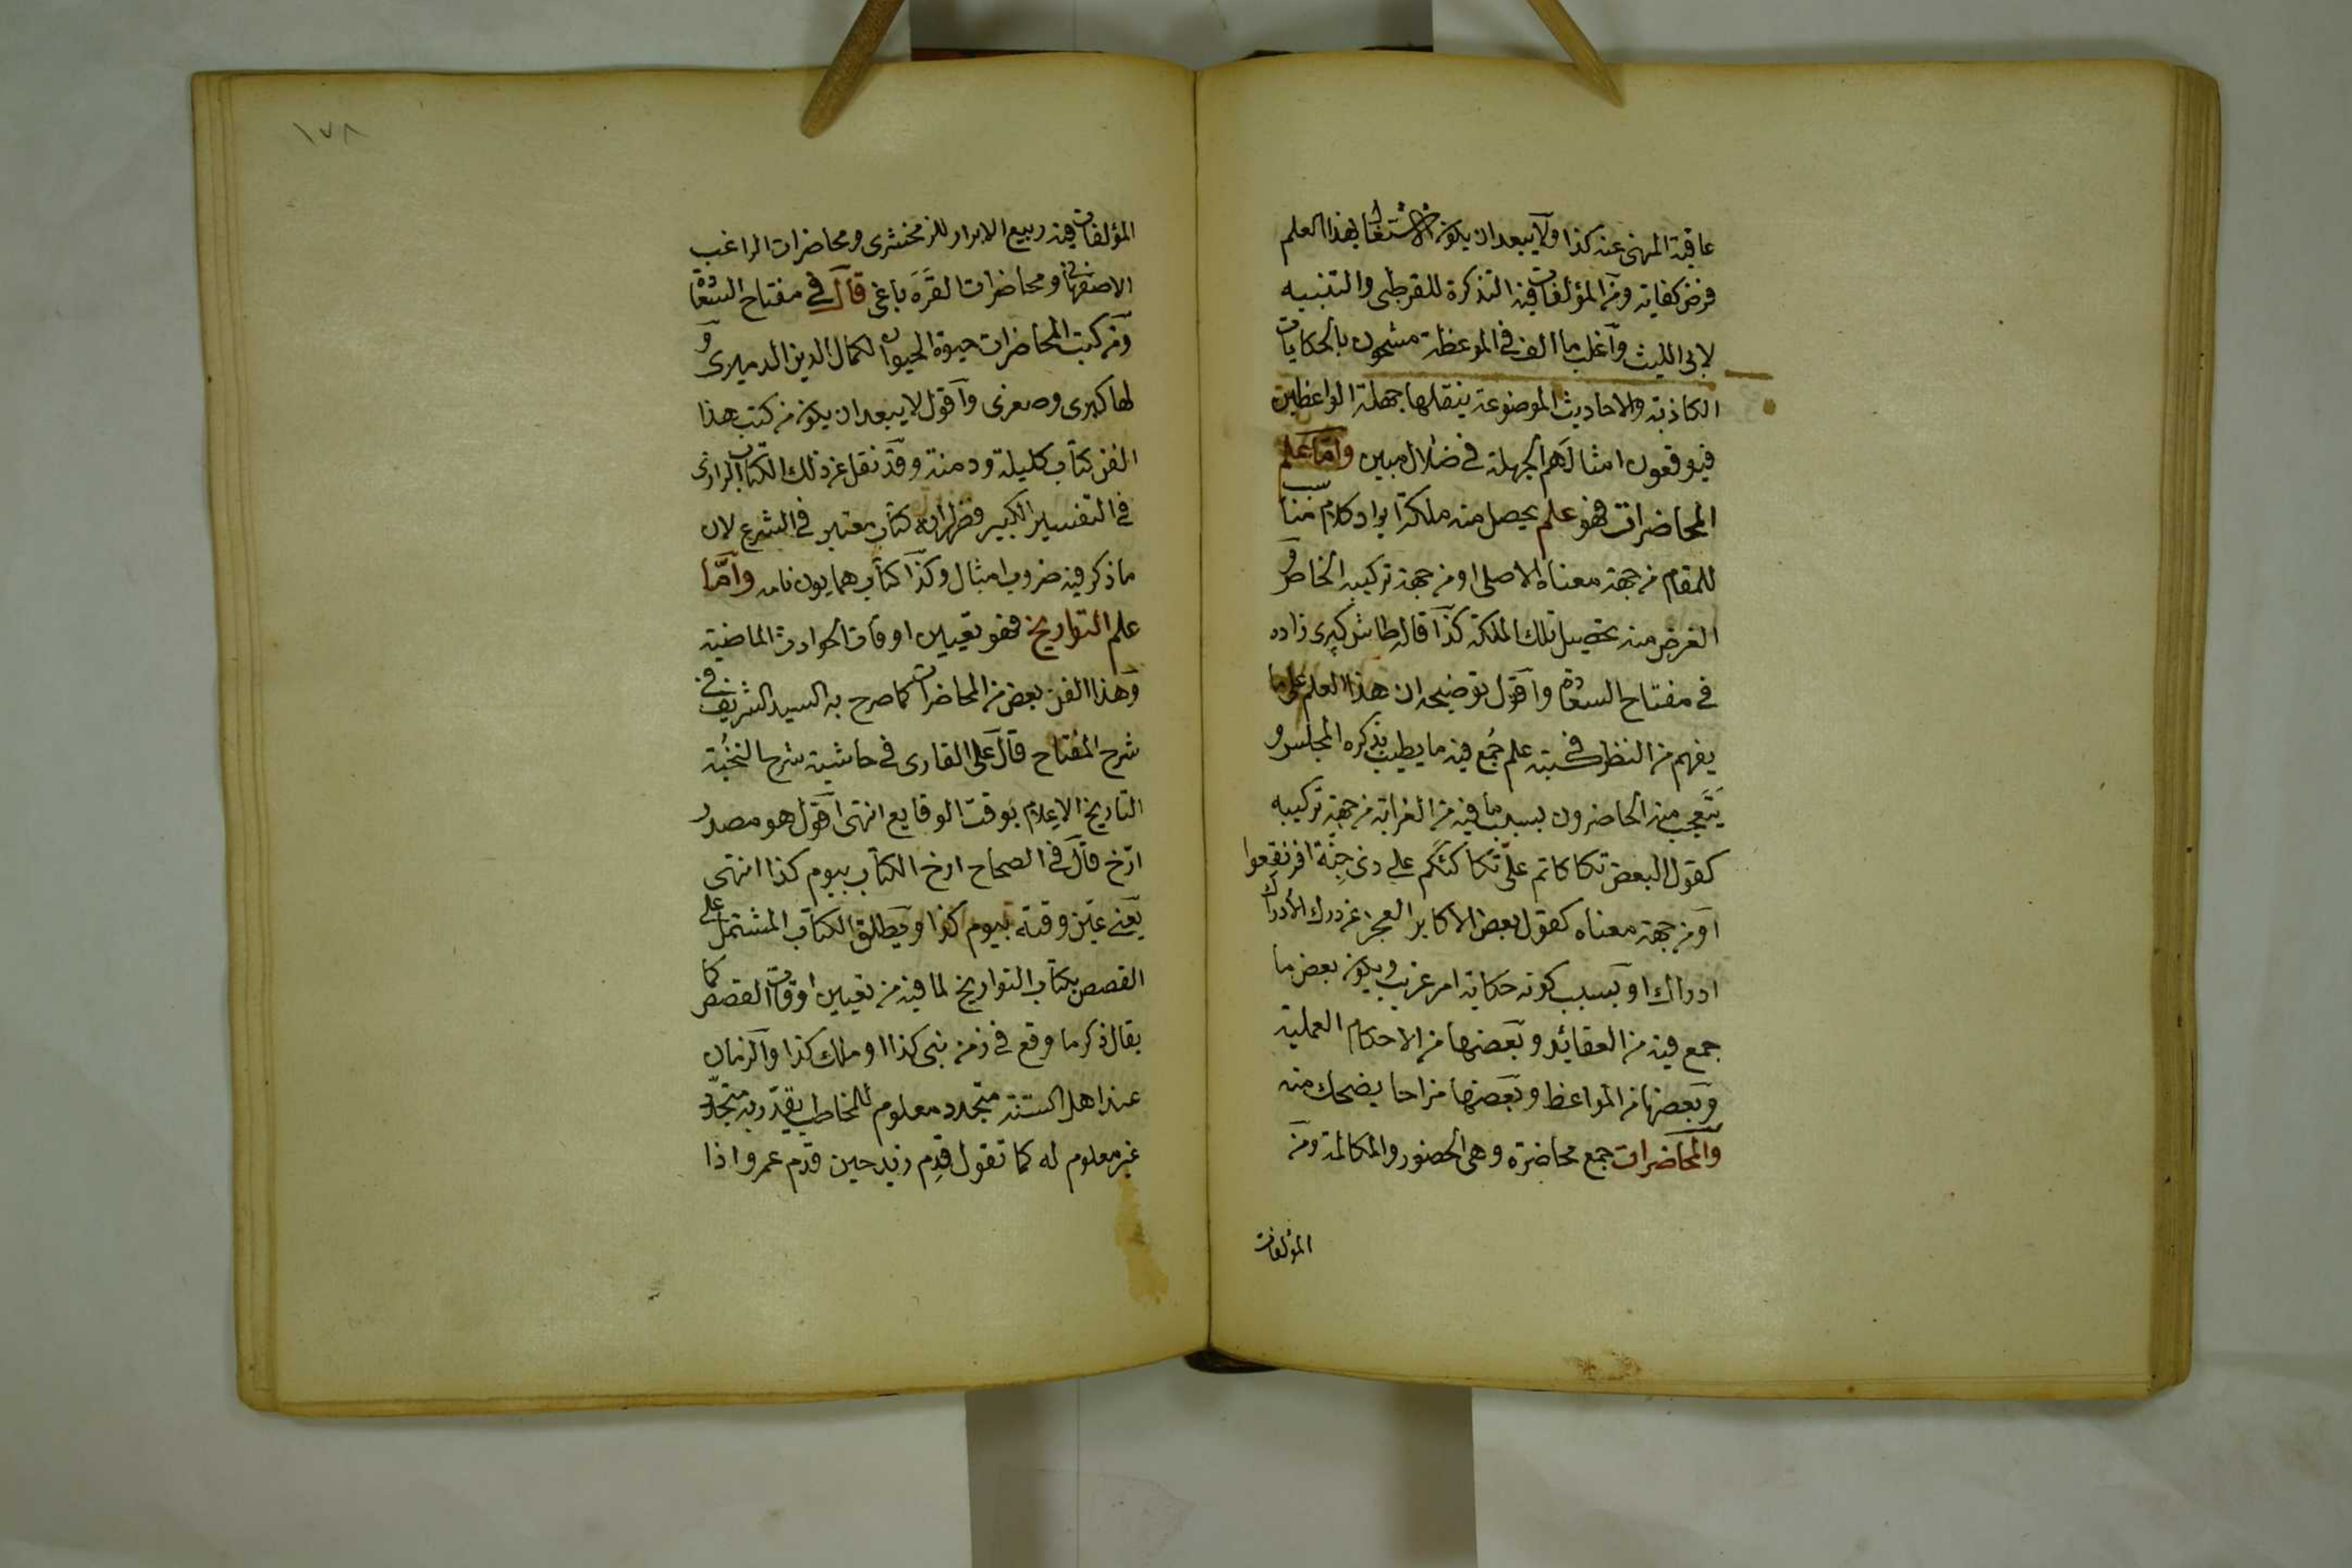 عاقبة المنهى عنه كذا ولا يبعد ان يكون الاشتغال بهذا العلم
فرض كفاية ومن المؤلفات فيه التذكرة للقرطبى والتنبيه
لابى الليث واغلب ما الف فى الموعظة مشحون بالحكايات
الكاذبة والاحاديث الموضوعة ينقلها جهلة الواعظين
فيوقعون امثالهم الجهلة فى ضلال مبين واما علم
المحاضرات فهو علم يحصل منه ملكة ايراد كلام مناسب
للمقام من جهة معناه الاصلى او من جهة تركيبه الخاص و
الغرض منه تحصيل تلك الملكة كذا قال طاش كپرى زاده
فى مفتاح السعادة واقول توضيحه ان هذا العلم على ما
يفهم من النظر فى كتبه علم جُمع فيه ما يطيب بذكره المجلس و
يَتَعجب منه الحاضرون بسبب ما فيه من الغرابة من جهة تركيبه
كقول البعض تكاكاتم علىّ تكاكئكم على ذى جِنّة افرنقعوا
او من جهة معناه كقول بعض الاكابر العجز عن درك الادراك
ادراك او بسبب كونه حكاية امر غريب ويكون بعض ما
جمع فيه من العقائد وبعضها من الاحكام العملية
وبعضها من المواعظ وبعضها مزاحا يضحك منه
والمحاضرات جمع محاضرة وهى الحضور والمكالمة ومن
المؤلفات
١٧٨
المؤلفات فيه ربيع الابرار للزمخشرى ومحاضرات الراغب
الاصفهانى ومحاضرات القَرَه باغى قال فى مفتاح السعادة
ومن كتب المحاضرات حيوة الحيوان لكمال الدين الدميرى و
لها كبرى وصغرى واقول لا يبعد ان يكون من كتب هذا
الفن كتاب كليلة ودمنة وقد نقل عن ذلك الكتاب الرازى
فى التفسير الكبير فظهر انه كتاب معتبر فى الشرع لان
ما ذكر فيه ضروب امثال وكذا كتاب همايون نامه وامّا
علم التواريخ فهو تعيين اوقات الحوادث الماضية
وهذا الفن بعض من المحاضرات كما صرح به السيد الشريف فى
شرح المفتاح قال على القارى فى حاشية شرح النخبة
التاريخ الاعلام بوقت الوقايع انتهى اقول هو مصدر
ارّخ قال فى الصحاح ارخ الكتاب بيوم كذا انتهى
يعنى عيّن وقته بيوم كذا ويطلق الكتاب المشتمل على
القصص بكتاب التواريخ لما فيه من تعيين اوقات القصص كما
يقال ذكر ما وقع فى زمن نبى كذا او ملك كذا والزمان
عند اهل السنة متجدد معلوم للمخاطب يقدّر به متجدّد
غير معلوم له كما تقول قدِم زيد حين قدم عمرو اذا